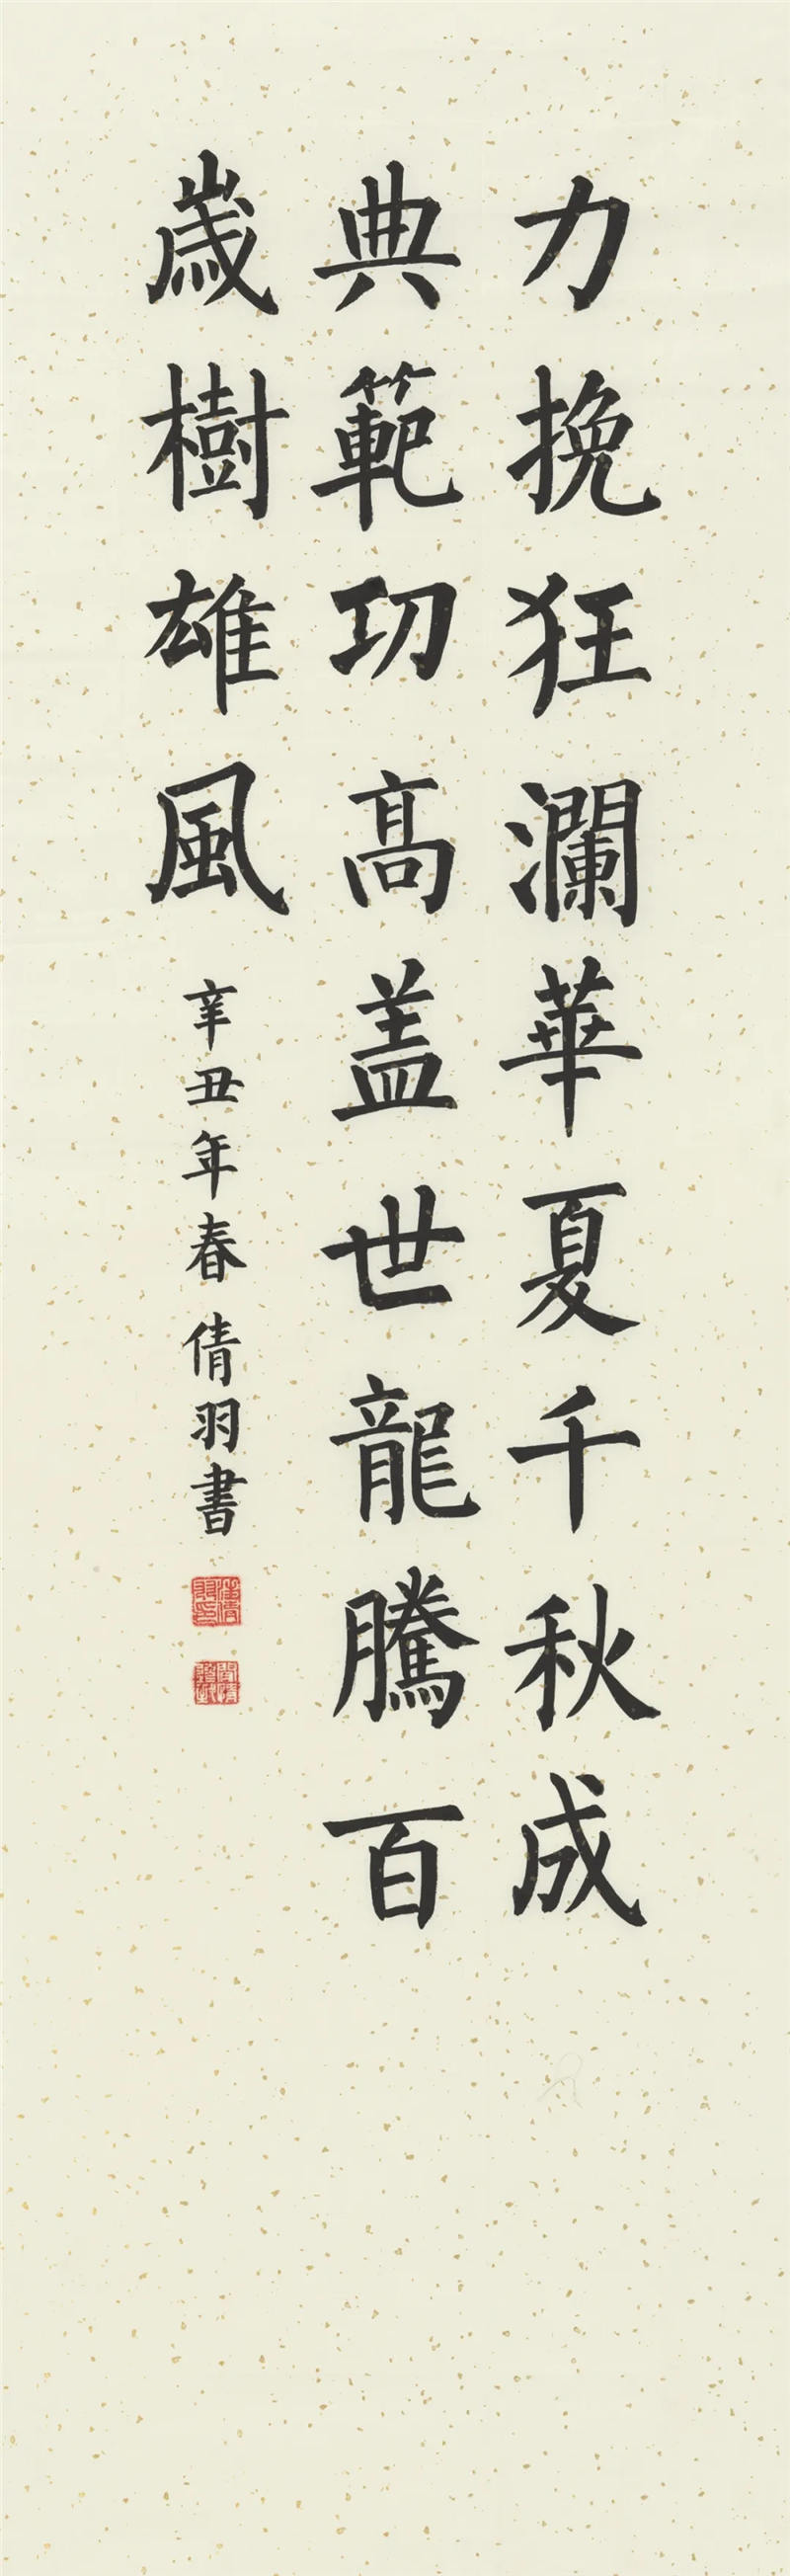 力挽狂瀾華夏千秋成
典範功高盖世龍騰百
歲樹雄風
辛丑年春倩羽書